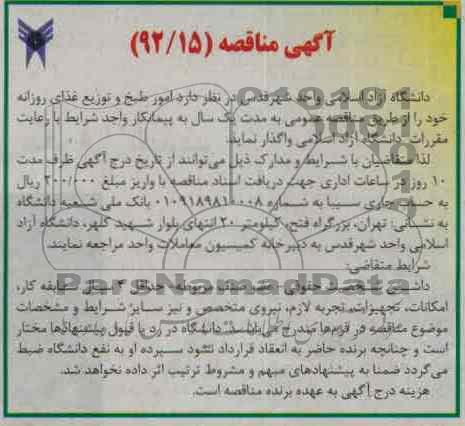 آگهی مناقصه (۹۲/۱۵)
دانشگاه آزاد اسلامی واحد شهرقدس در نظر دارد امور طبخ و توزیع غذای روزانه
خود را از طریق مناقصه عمومی به مدت یک سال به پیمانکار واجد شرایط با رعایت
مقررات دانشگاه آزاد اسلامی واگذار نماید.
لذا متقاضیان با شرایط و مدارک ذیل می‌توانند از تاریخ درج آگهی ظرف مدت
۱۰ روز در ساعات اداری جهت دریافت اسناد مناقصه با واریز مبلغ ۲۰۰/۰۰۰ ریال
به حساب جاری سیبا به شماره ۰۱۰۹۱۸۹۸۱۰۰۰۸ بانک ملی شعبه دانشگاه
به نشانی: تهران، بزرگراه فتح، کیلومتر ۲۰ انتهای بلوار شهید کلهر، دانشگاه آزاد
اسلامی واحد شهرقدس به دبیرخانه کمیسیون معاملات واحد مراجعه نمایند.
شرایط متقاضی:
داشتن شخصیت حقوقی صنف مربوطه - حداقل ۴ سال سابقه کار،
امکانات، تجهیزات، تجربه لازم، نیروی متخصص و نیز سایر شرایط و مشخصات
موضوع مناقصه در فرم‌ها مندرج می‌باشد. دانشگاه در رد یا قبول پیشنهادها مختار
است و چنانچه برنده حاضر به انعقاد قرارداد نشود سپرده او به نفع دانشگاه ضبط
می‌گردد ضمنا به پیشنهادهای مبهم و مشروط ترتیب اثر داده نخواهد شد.
هزینه درج آگهی به عهده برنده مناقصه است.
ParsNamadData